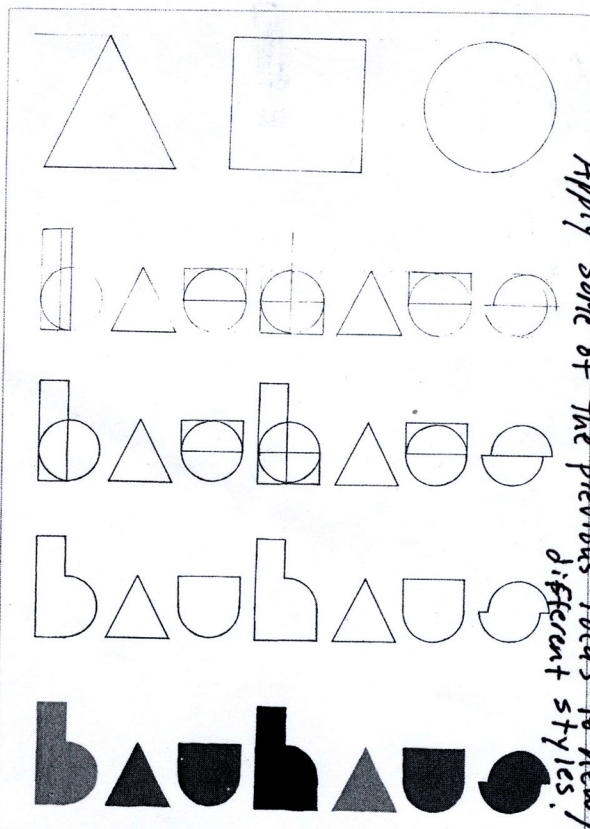 bauhaus
bauhaus
bauhaus
bauhaus
Apply some of the previous ideas to new/
different styles.